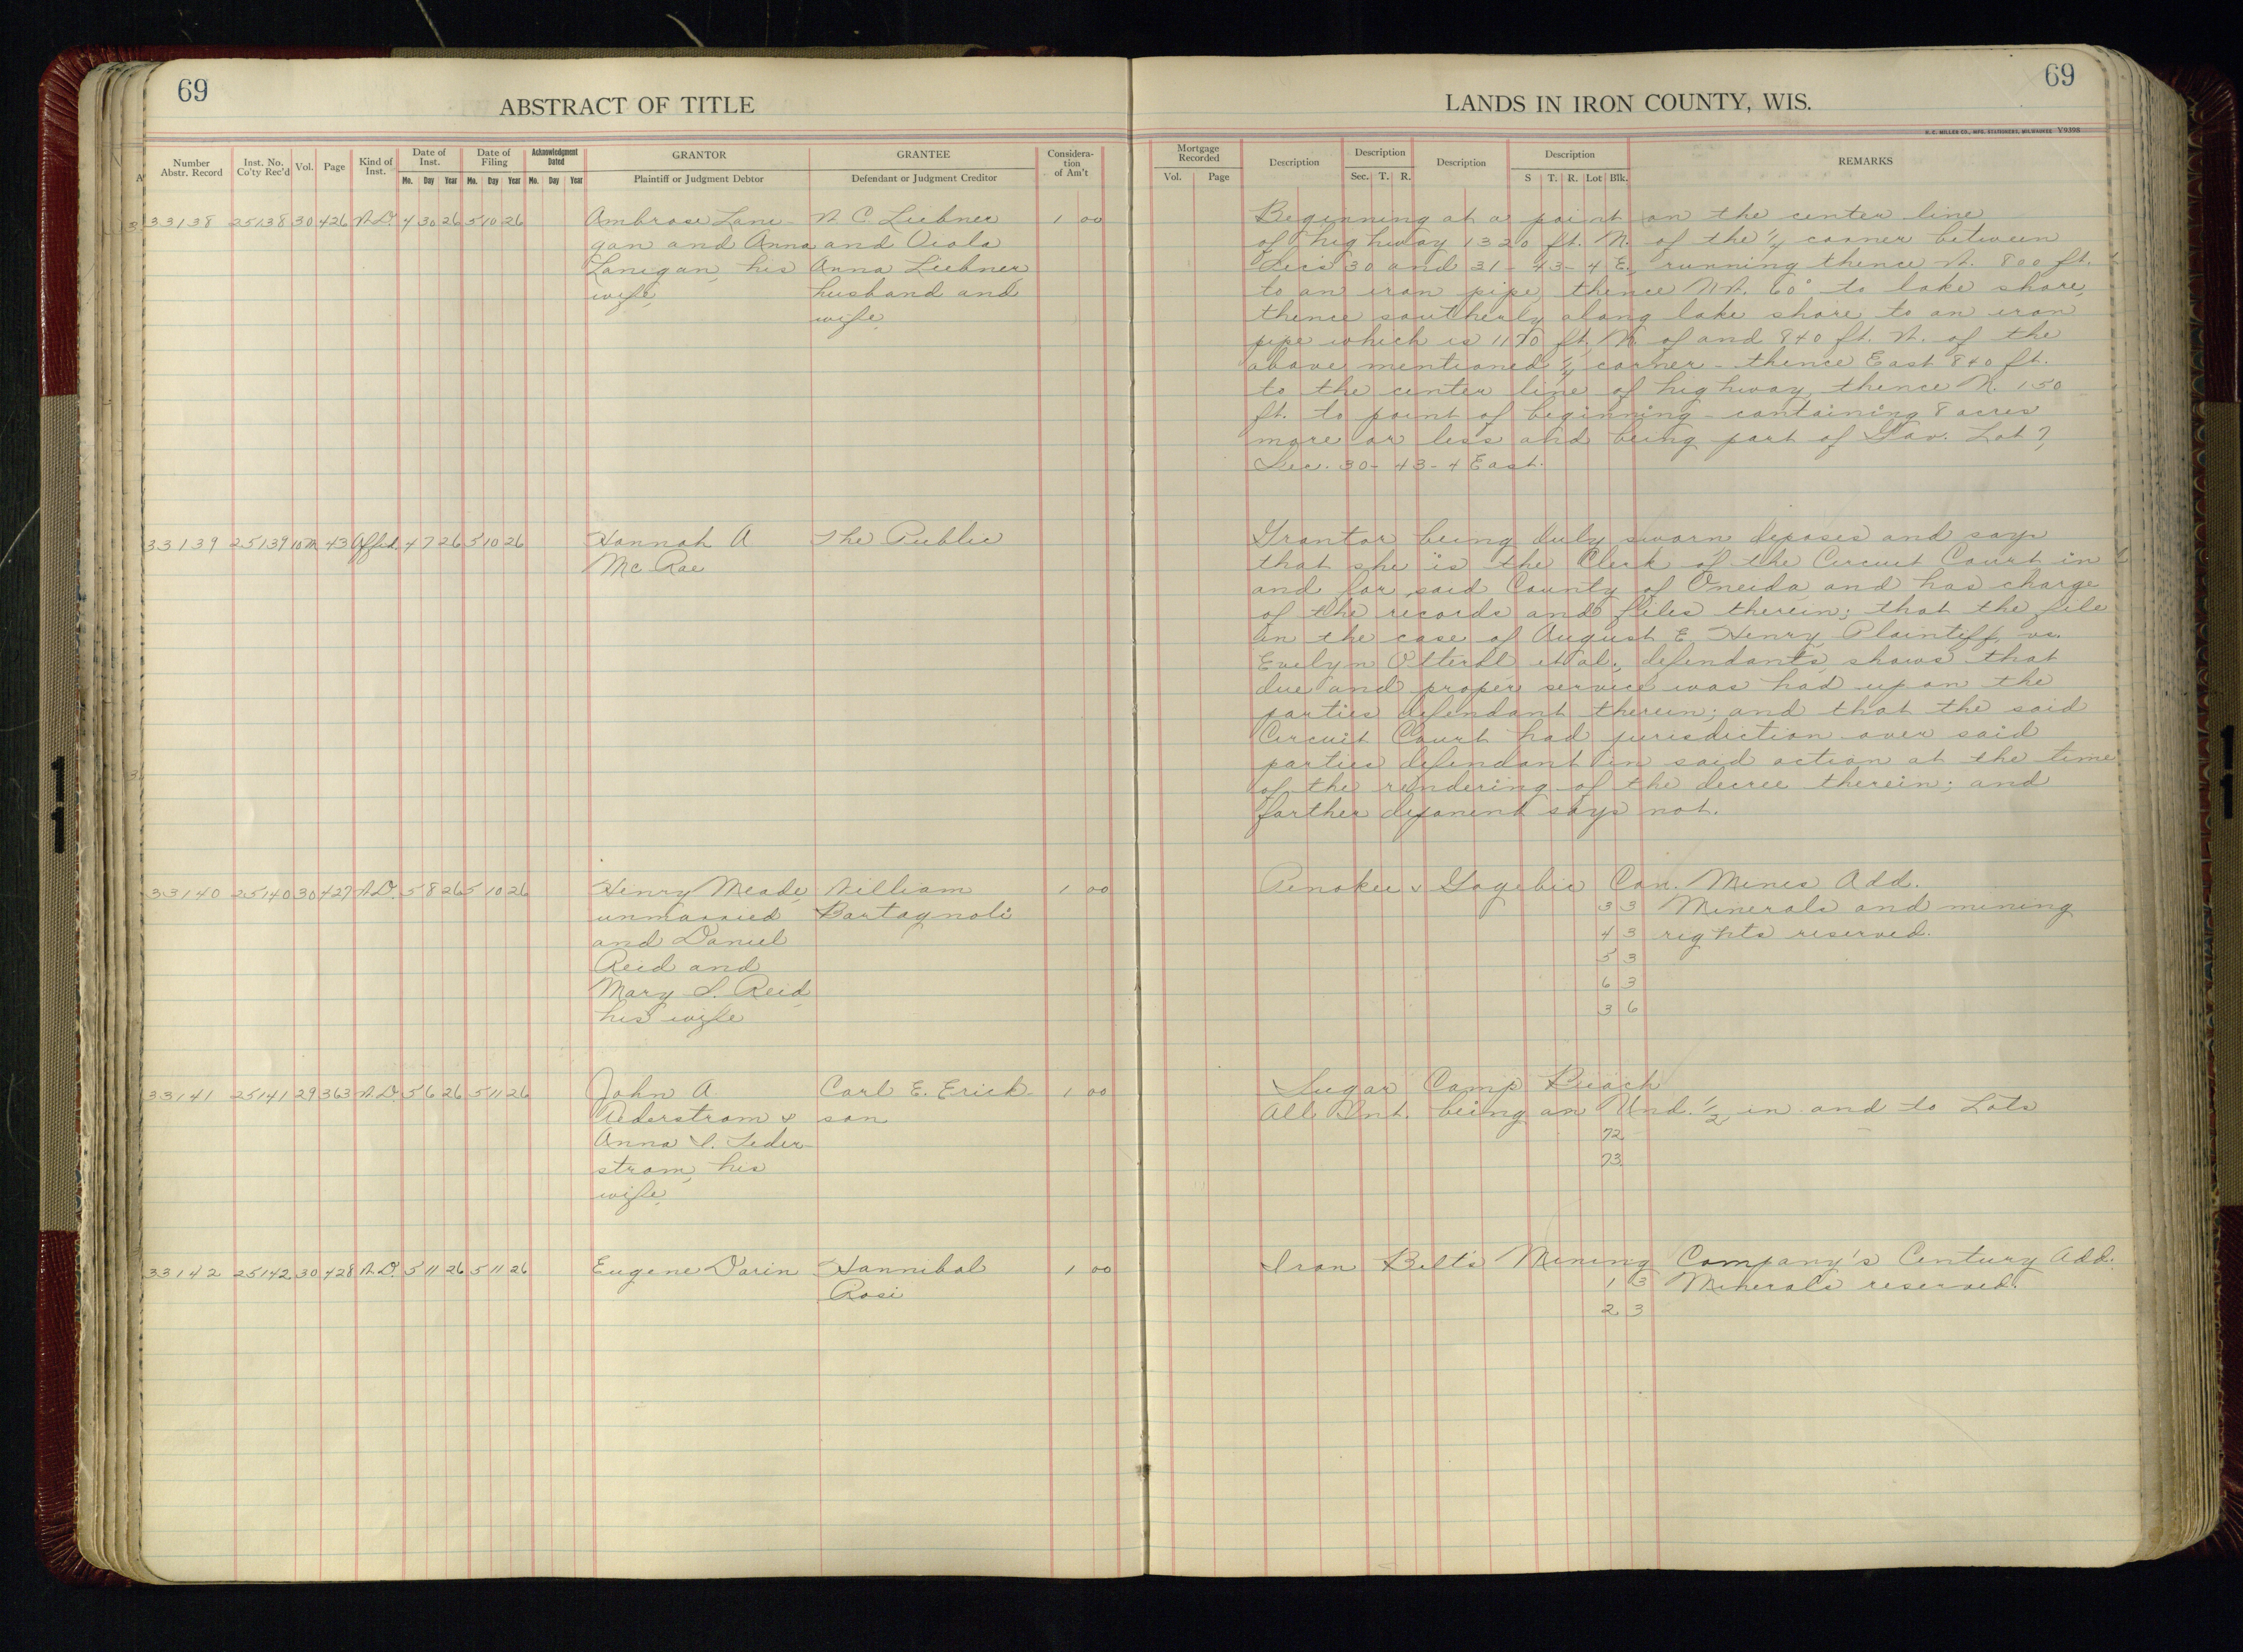 69
ABSTRACT OF TITLE
LANDS IN IRON COUNTY, WIS.
69
H. C. MILLER CO., MFG. STATIONERS, MILWAUKEE V9398
Number Abstr. Record
Inst. No. Co'ty Rec'd
Vol.
Page
Kind of Inst.
Date of Inst.
Mo. Day Year
Date of Filing
Mo. Day Year
Acknowledgment Dated
Mo. Day Year
GRANTOR
Plaintiff or Judgment Debtor
GRANTEE
Defendant or Judgment Creditor
Considera-
tion
of Am't
Mortgage Recorded
Vol. Page
Description
Description
Sec. T. R.
Description
Description
S T. R. Lot Blk.
REMARKS
33138 25138 30 426 W.D. 4 30 26 5 10 26
Ambrose Lane-
gan and Anna
Lanegan, his
wife
W. C. Liebner
and Viola
Anna Liebner
husband and
wife
1 00
Beginning at a point on the center line
of highway 1320 ft. N. of the 1/4 corner between
Sec's 30 and 31 - 43 - 4 E., running thence W. 800 ft.
to an iron pipe, thence NW. 60° to lake shore,
thence southerly along lake shore to an iron
pipe which is 1170 ft. N. of and 840 ft. W. of the
above mentioned 1/4 corner - thence East 840 ft.
to the center line of highway, thence N. 150
ft. to point of beginning - containing 8 acres
more or less and being part of Gov. Lot 7,
Sec. 30 - 43 - 4 East.
33139 25139 10M 43 Affid. 4 7 26 5 10 26
Hannah A
Mc Rae
The Public
Grantor being duly sworn deposes and says
that she is the Clerk of the Circuit Court in
and for said County of Oneida and has charge
of the records and files therein; that the file
in the case of August E. Henry Plaintiff, vs.
Evelyn et al., defendants, shows that
due and proper service was had upon the
parties defendant therein; and that the said
Circuit Court had jurisdiction over said
parties defendant in said action at the time
of the rendering of the decree therein; and
farther deponent says not.
33140 25140 30 427 W.D. 5 8 26 5 10 26
Henry Meade,
unmarried
and Daniel
Reid and
Mary S. Reid,
his wife
William
Bartagnoli
1 00
Penokee & Gogebic Con. Mines Add.
3 3 Minerals and mining
4 3 rights reserved.
5 3
6 3
3 6
33141 25141 29 363 W.D. 5 6 26 5 11 26
John A.
Anna S. Seder-
strom, his
wife
Carl E. Erick-
son
1 00
Sugar Camp Beach
All Int. being an Und. 1/2 in and to Lots
72
73
33142 25142 30 428 W.D. 5 11 26 5 11 26
Eugene Darin
Hannibal
Rosi
1 00
Iron Belt's Mining Company's Century Add.
1 3 Minerals reserved.
2 3